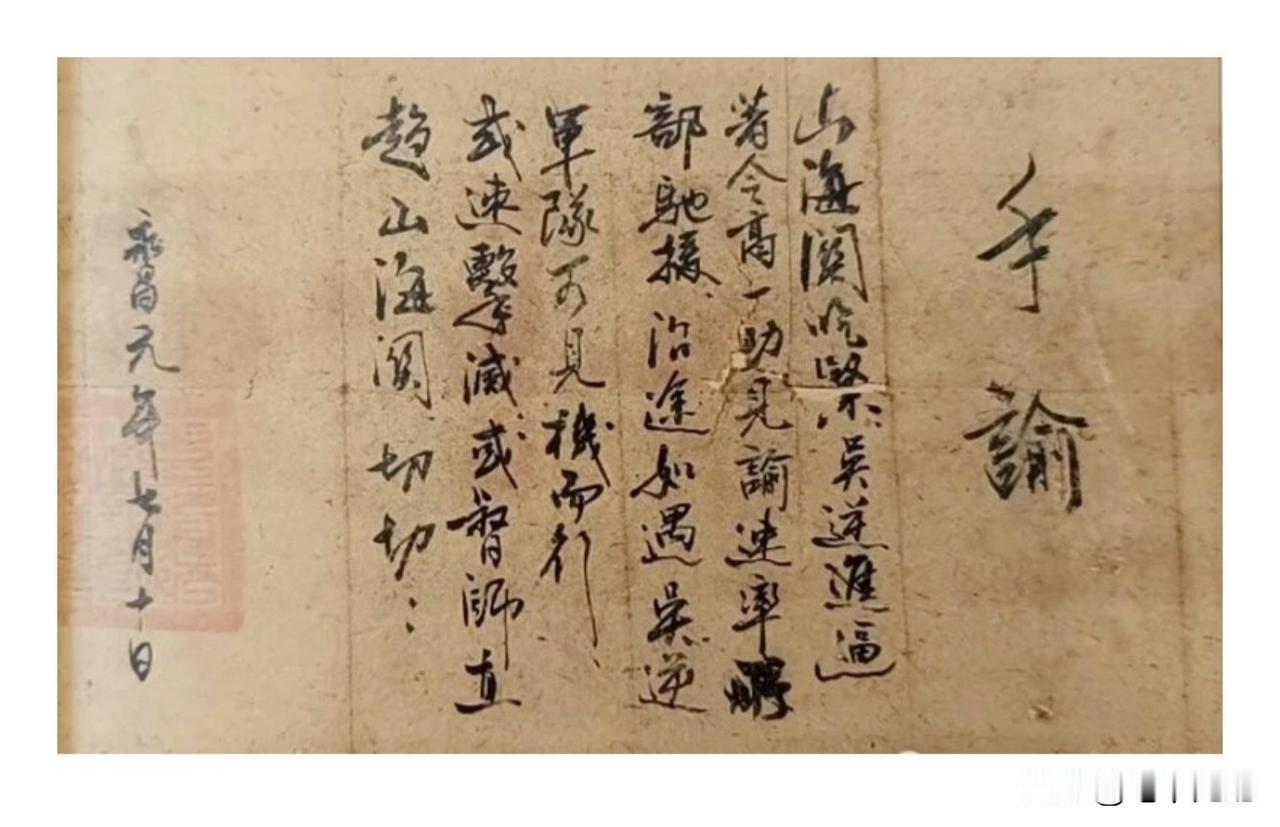 手諭
山海関吃緊吳逆進逼
著令高一功見諭速率所
部馳援沿途如遇吳逆
軍隊可見機而行
或速擊滅或督師直
趨山海関切切
永昌元年七月十日